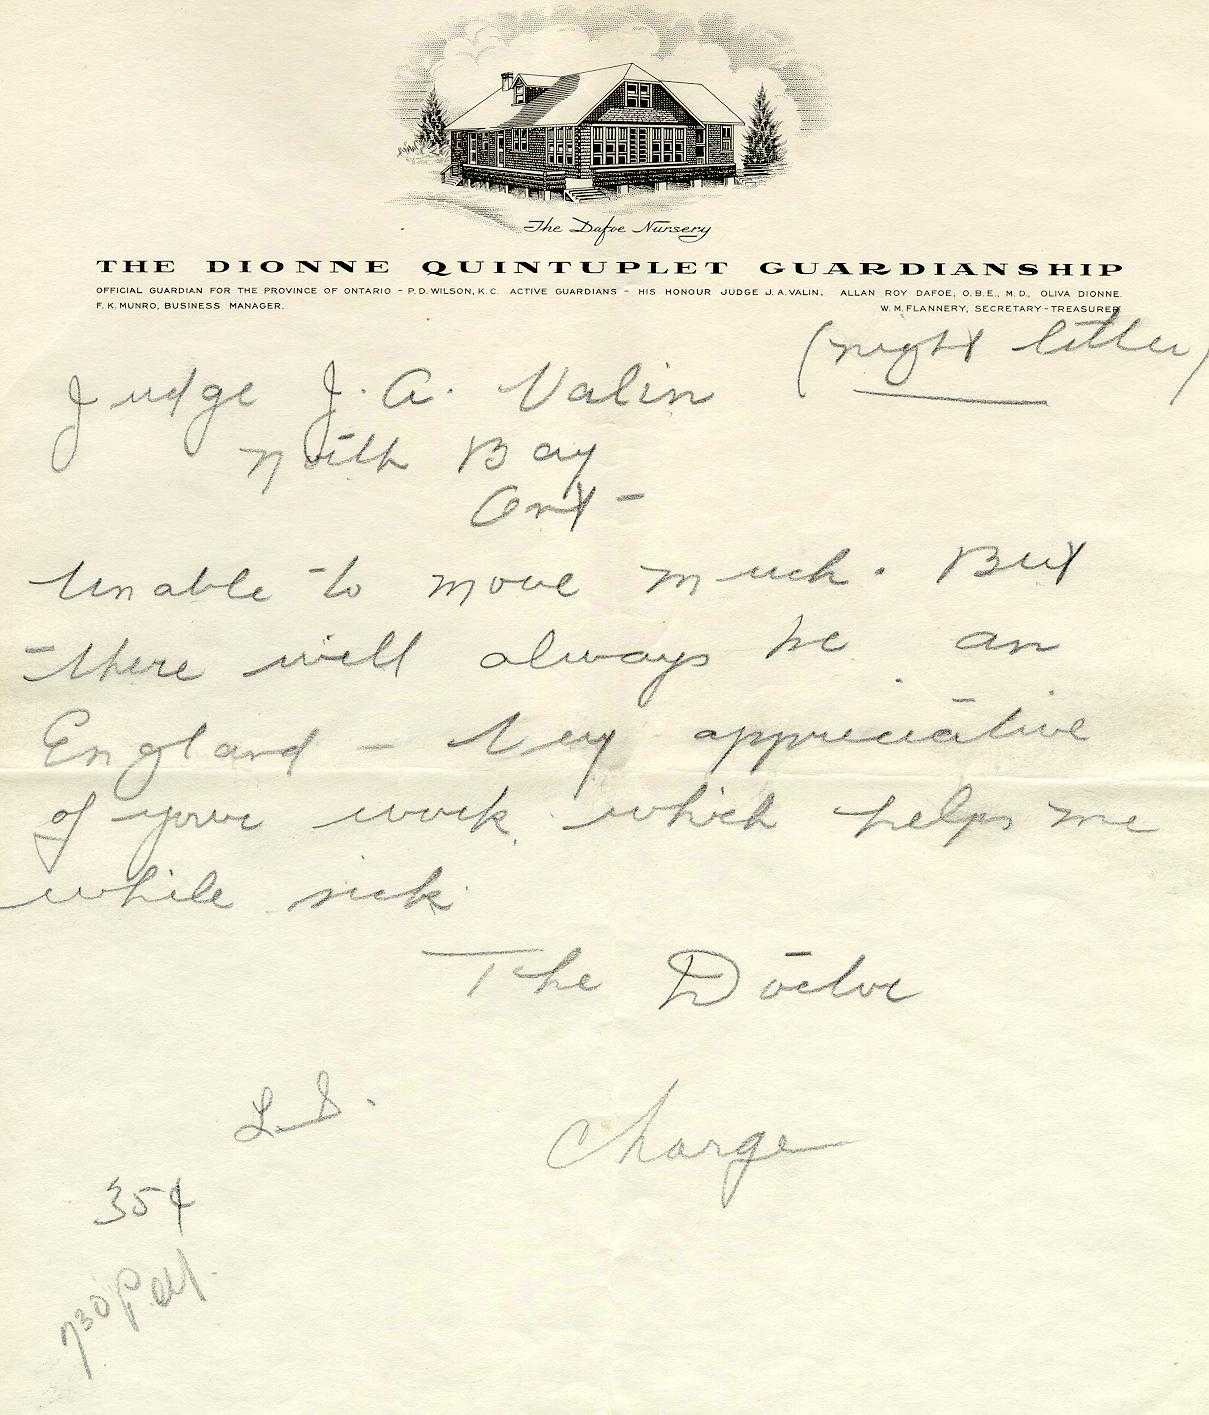 The Dafoe Nursery
THE DIONNE QUINTUPLET GUARDIANSHIP
OFFICIAL GUARDIAN FOR THE PROVINCE OF ONTARIO - P. D. WILSON, K. C. ACTIVE GUARDIANS - HIS HONOUR JUDGE J. A. VALIN, ALLAN ROY DAFOE, O.B.E., M.D., OLIVA DIONNE.
F. K. MUNRO, BUSINESS MANAGER. W. M. FLANNERY, SECRETARY-TREASURER
(night letter)
Judge J. A. Valin
North Bay
Ont -
Unable to move much. But
there will always be an
England - Very appreciative
of your work which helps me
while sick.
The Doctor
L.S.
Charge
35¢
730 P.M.